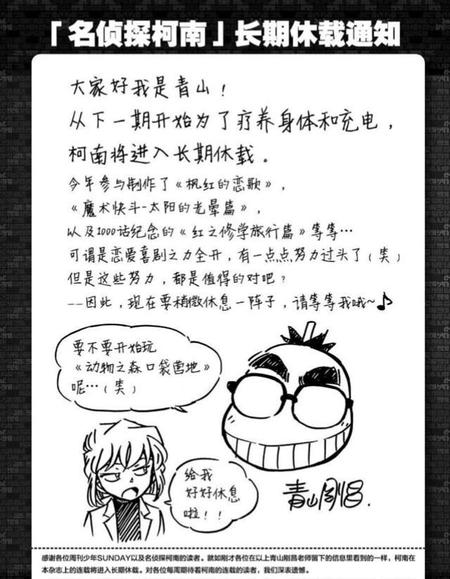 「名侦探柯南」长期休载通知
大家好我是青山！
从下一期开始为了疗养身体和充电，
柯南将进入长期休载。
今年参与制作了《枫红的恋歌》，
《魔术快斗-太阳的光晕篇》，
以及1000话纪念的《红之修学旅行篇》等等…
可谓是恋爱喜剧之力全开，有一点点努力过头了（笑）
但是这些努力，都是值得的对吧？
——因此，现在要稍微休息一阵子，请等等我哦~♪
要不要开始玩
《动物之森口袋营地》
呢…（笑）
给我
好好休息
啦！！
青山刚昌.
感谢各位周刊少年SUNDAY以及名侦探柯南的读者。就如刚才各位在以上青山刚昌老师留下的信息里看到的一样，柯南在
本杂志上的连载将进入长期休载。对各位每周期待着柯南的连载的读者，我们深表遗憾。